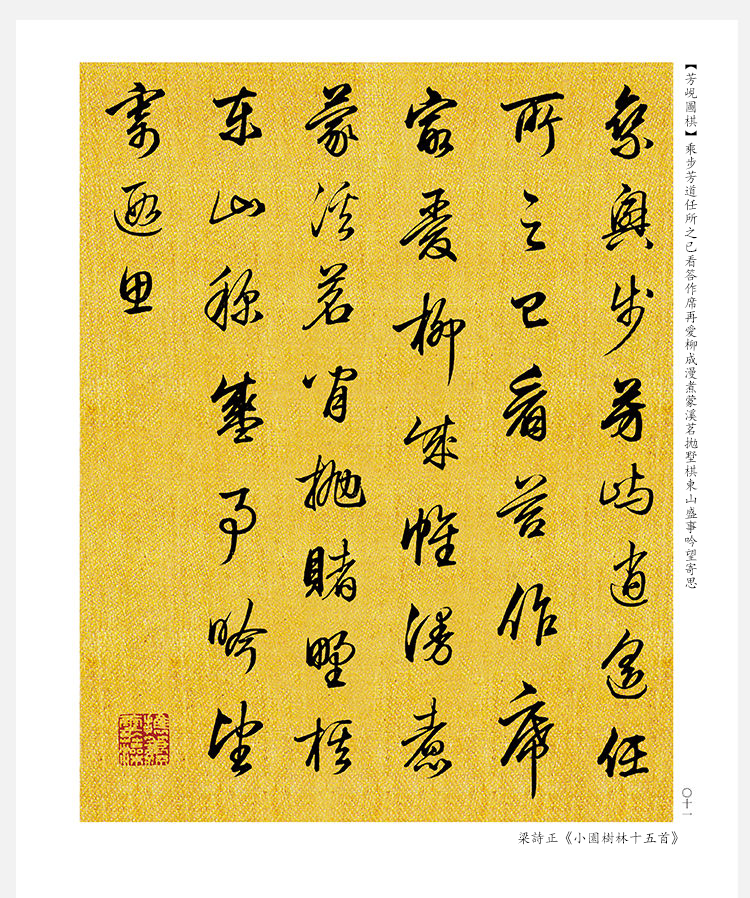 【芳峴圖棋】乘步芳道任所之已看答作席再愛柳成漫煮蒙溪茗拋墅棋東山盛事吟望寄思
乘興步芳嶼逍遙任
所之已看苔作席
最愛柳成帷漫煮
蒙溪茗閒拋賭墅棋
東山稱盛事吟望
寄遐思
〇十一
梁詩正《小園樹林十五首》